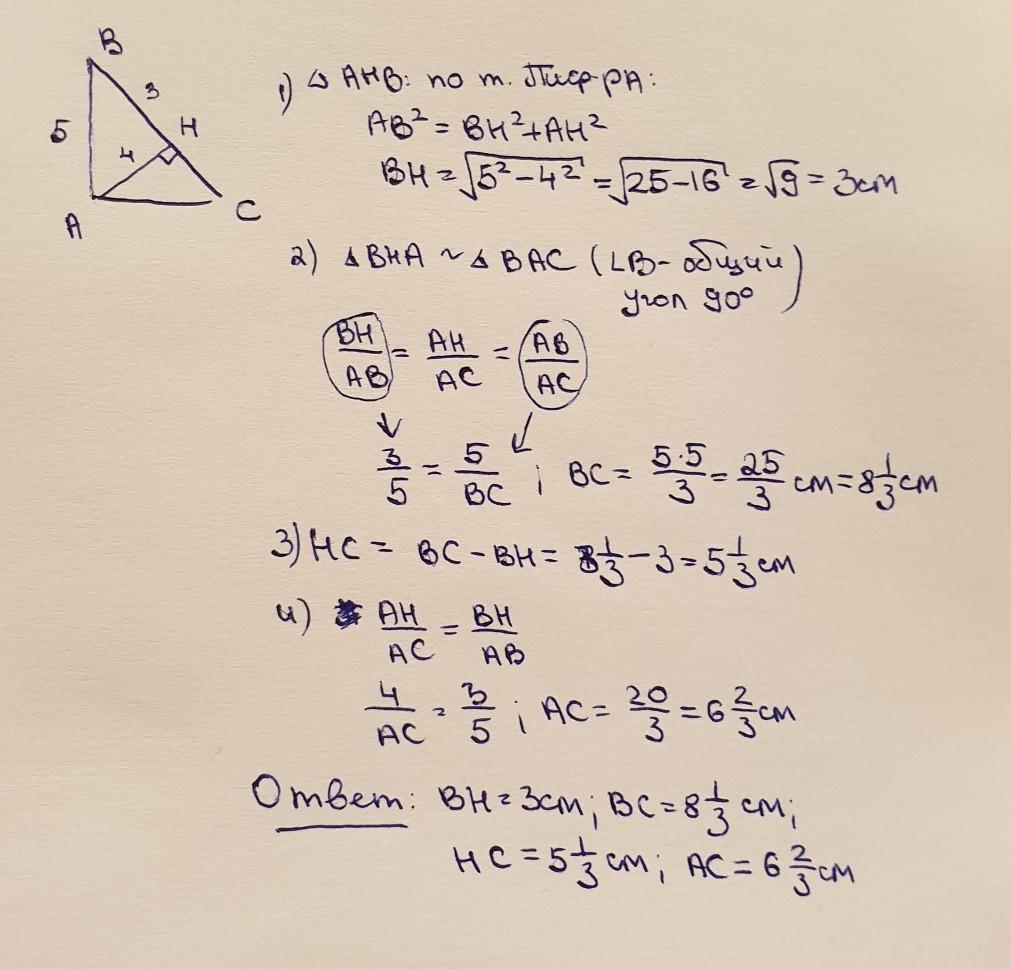 B
3
5
H
4
A
C
1) △ AHB: по т. Пиф-рА:
AB² = BH² + AH²
BH = √5² − 4² = √25 − 16 = √9 = 3 см
2) △ BHA ~ △ BAC (∠B - общий
угол 90°)
BH/AB = AH/AC = AB/AC
3/5 = 5/BC ; BC = 5·5/3 = 25/3 см = 8 1/3 см
3) HC = BC − BH = 8 1/3 − 3 = 5 1/3 см
4) AH/AC = BH/AB
4/AC = 3/5 ; AC = 20/3 = 6 2/3 см
Ответ: BH = 3 см; BC = 8 1/3 см;
HC = 5 1/3 см; AC = 6 2/3 см